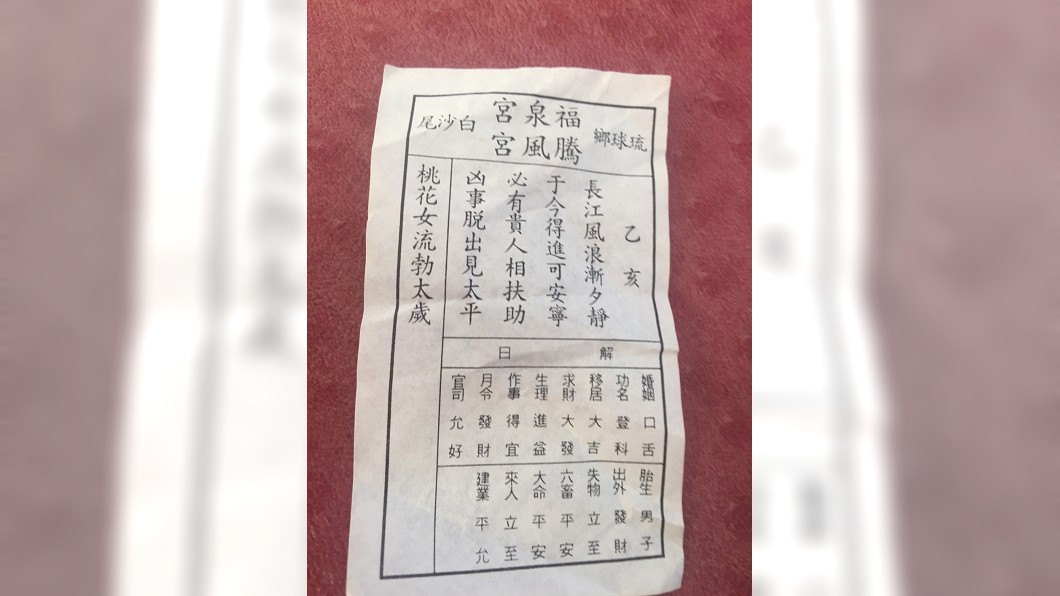 琉球鄉
福泉宮
騰風宮
白沙尾
乙亥
長江風浪漸夕靜
于今得進可安寧
必有貴人相扶助
凶事脱出見太平
桃花女流勃太歲
解日
婚姻 口舌
功名 登科
移居 大吉
求財 大發
生理 進益
作事 得宜
月令 發財
官司 允好
胎生 男子
出外 發財
失物 立至
六畜 平安
大命 平安
來人 立至
建業 平允